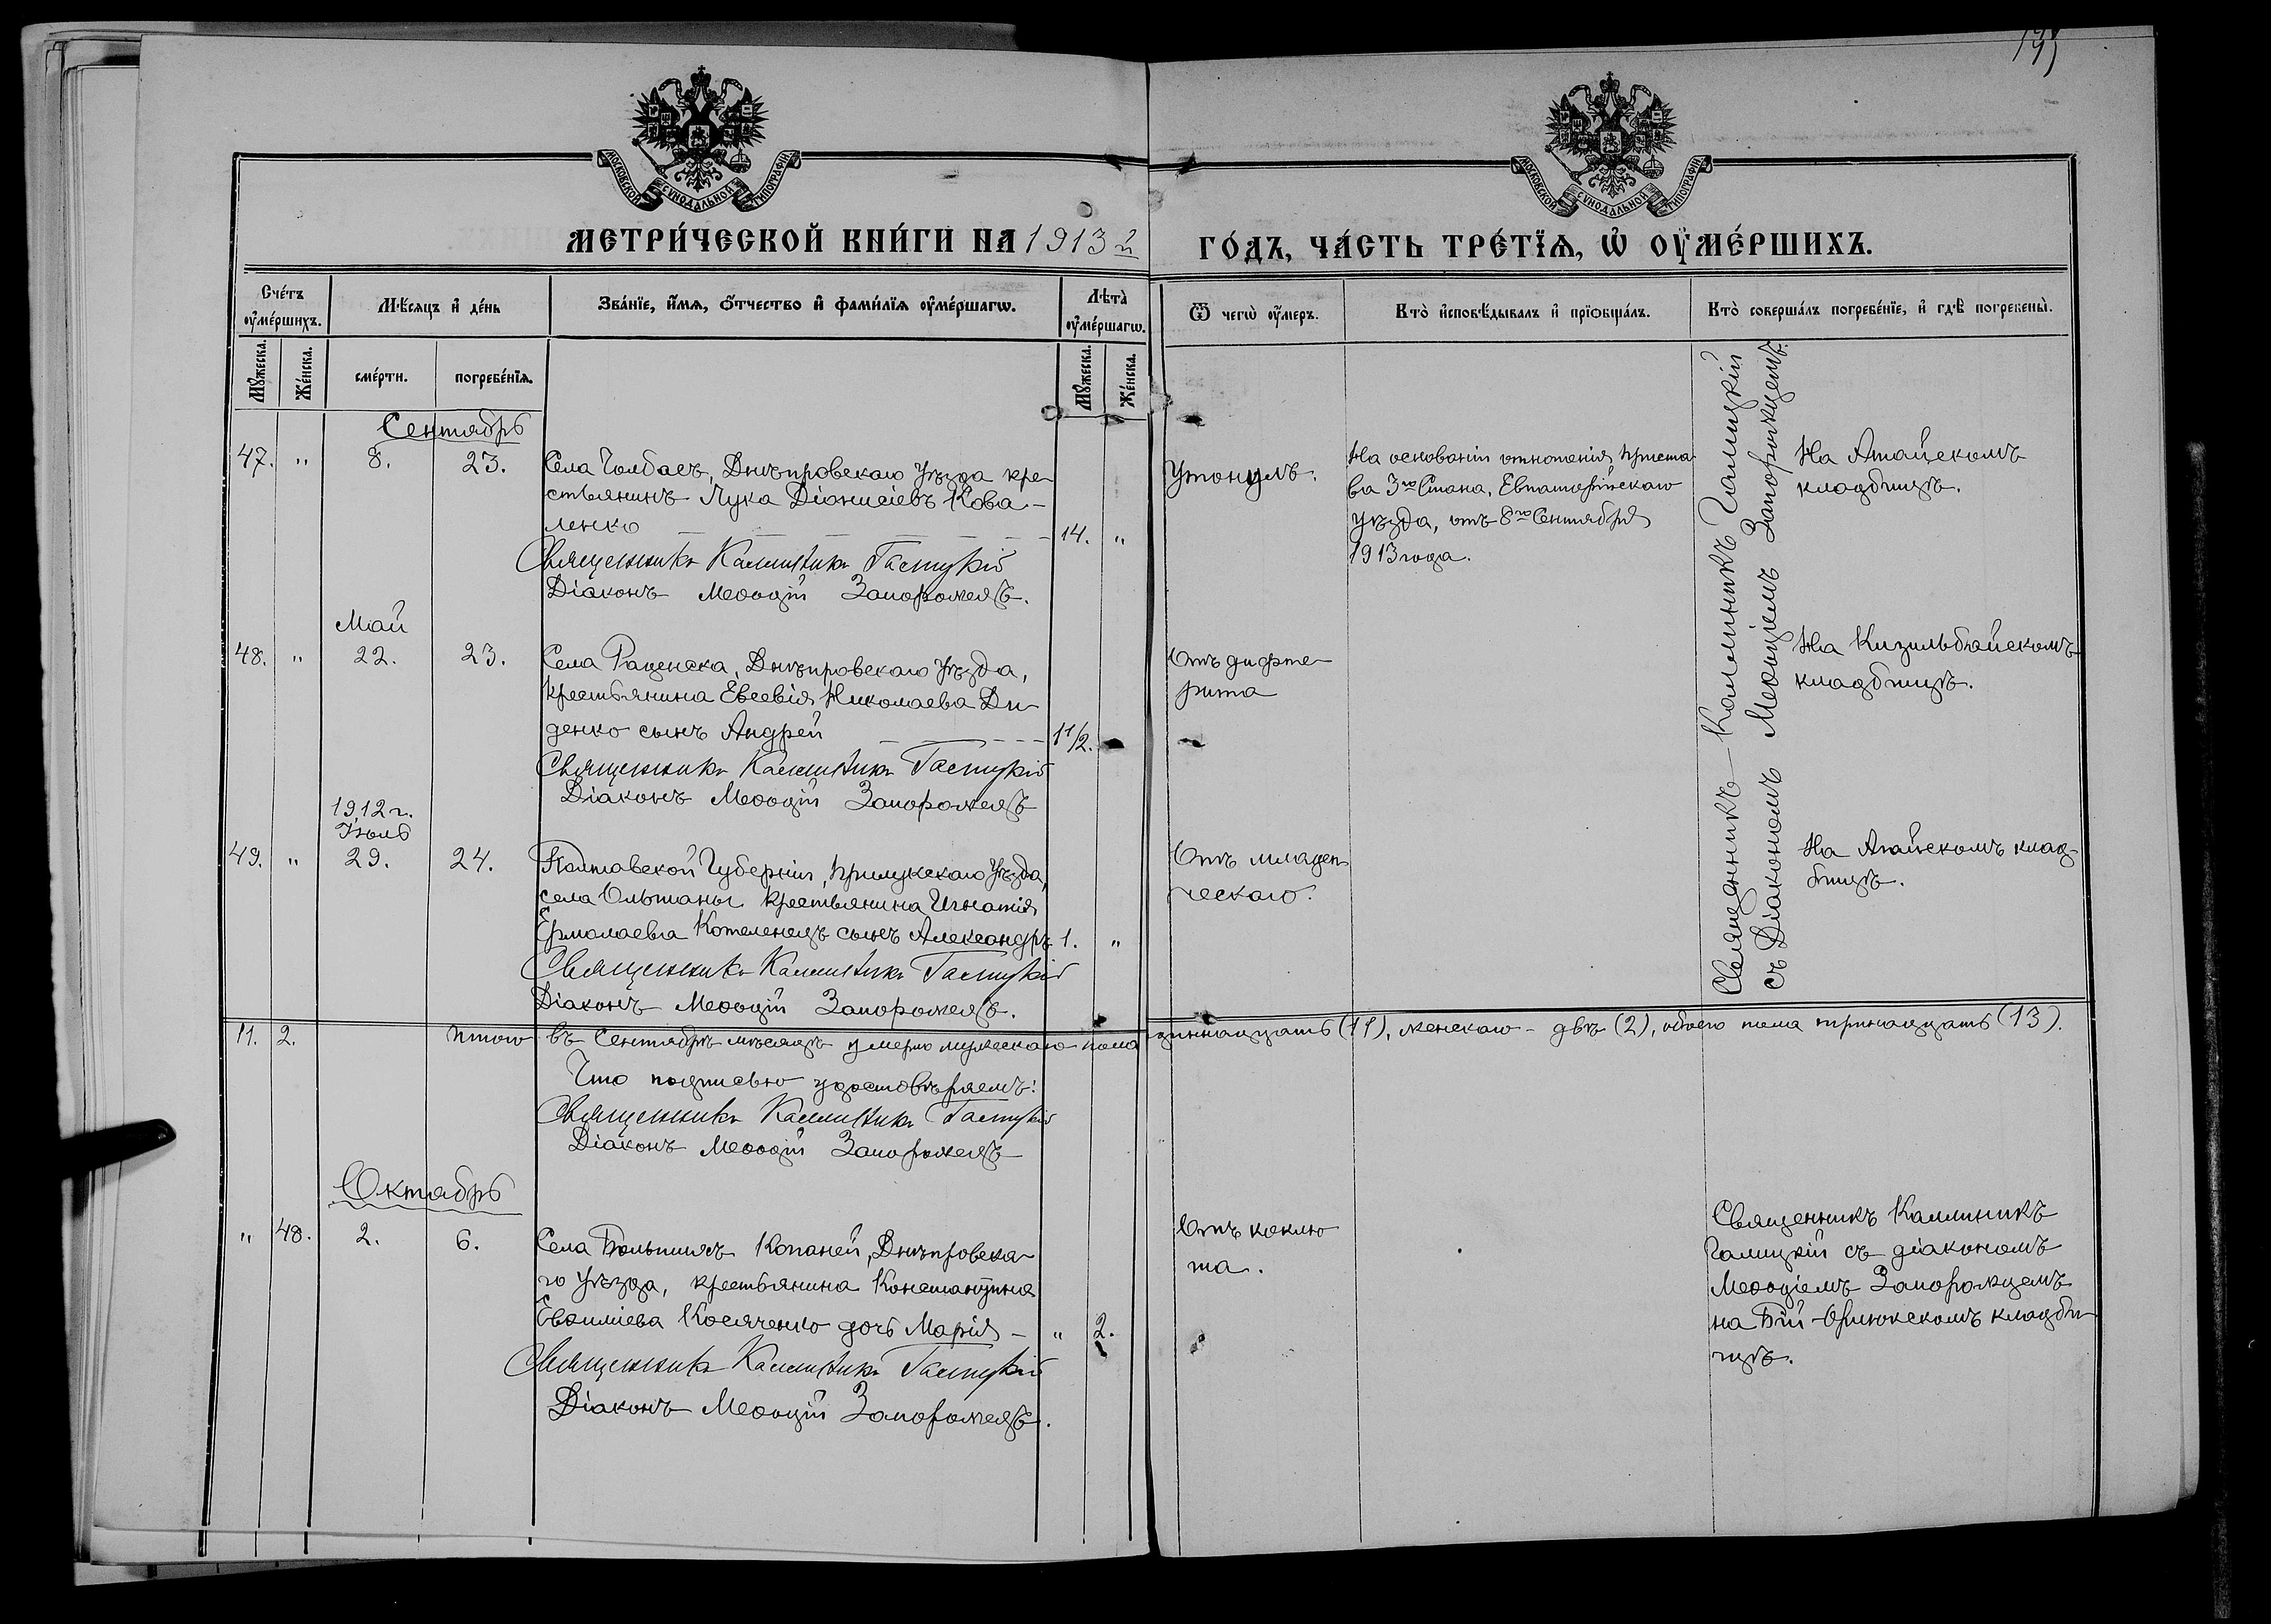 195
МОСКОВСКОЙ СѴНОДАЛЬНОЙ ТИПОГРАФІИ
МОСКОВСКОЙ СѴНОДАЛЬНОЙ ТИПОГРАФІИ
МЕТРИ́ЧЕСКОЙ КНИ́ГИ НА 1913 г
ГО́ДЪ, ЧА́СТЬ ТРЕ́ТЇѦ, Ѡ҆ ОУ҆МЕ́РШИХЪ.
Сче́тъ
оу҆ме́ршихъ.
Мѣ́сяцъ и҆ де́нь
Зва́нїе, и҆́мя, ѻ҆́тчество и҆ фами́лїя оу҆ме́ршагѡ.
Лѣта̀
оу҆ме́ршагѡ.
Ѿ чегѡ̀ оу҆́меръ.
Кто̀ и҆сповѣ́дывалъ и҆ прїѡбща́лъ.
Кто̀ соверша́лъ погребе́нїе, и҆ гдѣ̀ погребены̀.
Мꙋ́жеска.
Же́нска.
сме́рти.
погребе́нїя.
Мꙋ́жеска.
Же́нска.
Сентябрь
47. " 8. 23. Села Чолбасъ, Днѣпровскаго уѣзда кре-
стьянинъ Лука Діонисіевъ Кова-
ленко 14. "
Священникъ Каллиникъ Галицкій
Діаконъ Меѳодій Запорожецъ.
Утонулъ.
На основаніи отношенія приста-
ва 3го Стана, Евпаторійскаго
уѣзда, отъ 8го Сентября
1913 года.
На Атайскомъ
кладбищѣ.
Священникъ Каллиникъ Галицкій
съ Діакономъ Меѳодіемъ Запорожцемъ.
Май
48. " 22. 23. Села Раденска, Днѣпровскаго уѣзда,
крестьянина Евсевія Николаева Ди-
денко сынъ Андрей 1 1/2.
Священникъ Каллиникъ Галицкій
Діаконъ Меѳодій Запорожецъ
Отъ дифте-
рита
На Кизильбайскомъ
кладбищѣ.
1912 г.
Іюль
49. " 29. 24. Полтавской Губерніи, Прилукскаго уѣзда,
села Ольшаны крестьянина Игнатія
Ермолаева Котеленецъ сынъ Александръ 1. "
Священникъ Каллиникъ Галицкій
Діаконъ Меѳодій Запорожецъ.
Отъ младен-
ческаго.
На Атайскомъ клад-
бищѣ.
11. 2. Итого въ Сентябрѣ мѣсяцѣ умерло мужескаго пола одиннадцать (11), женскаго - двѣ (2), обоего пола тринадцать (13).
Что подписью удостовѣряемъ:
Священникъ Каллиникъ Галицкій
Діаконъ Меѳодій Запорожецъ
Октябрь
" 48. 2. 6. Села Большихъ Копаней, Днѣпровска-
го уѣзда, крестьянина Константина
Евѳиміева Косяченко дочь Марія - " 2.
Священникъ Каллиникъ Галицкій
Діаконъ Меѳодій Запорожецъ.
Отъ коклю
ша.
Священникъ Каллиникъ
Галицкій съ діакономъ
Меѳодіемъ Запорожцемъ
на Бій-Орлюкскомъ кладби-
щѣ.